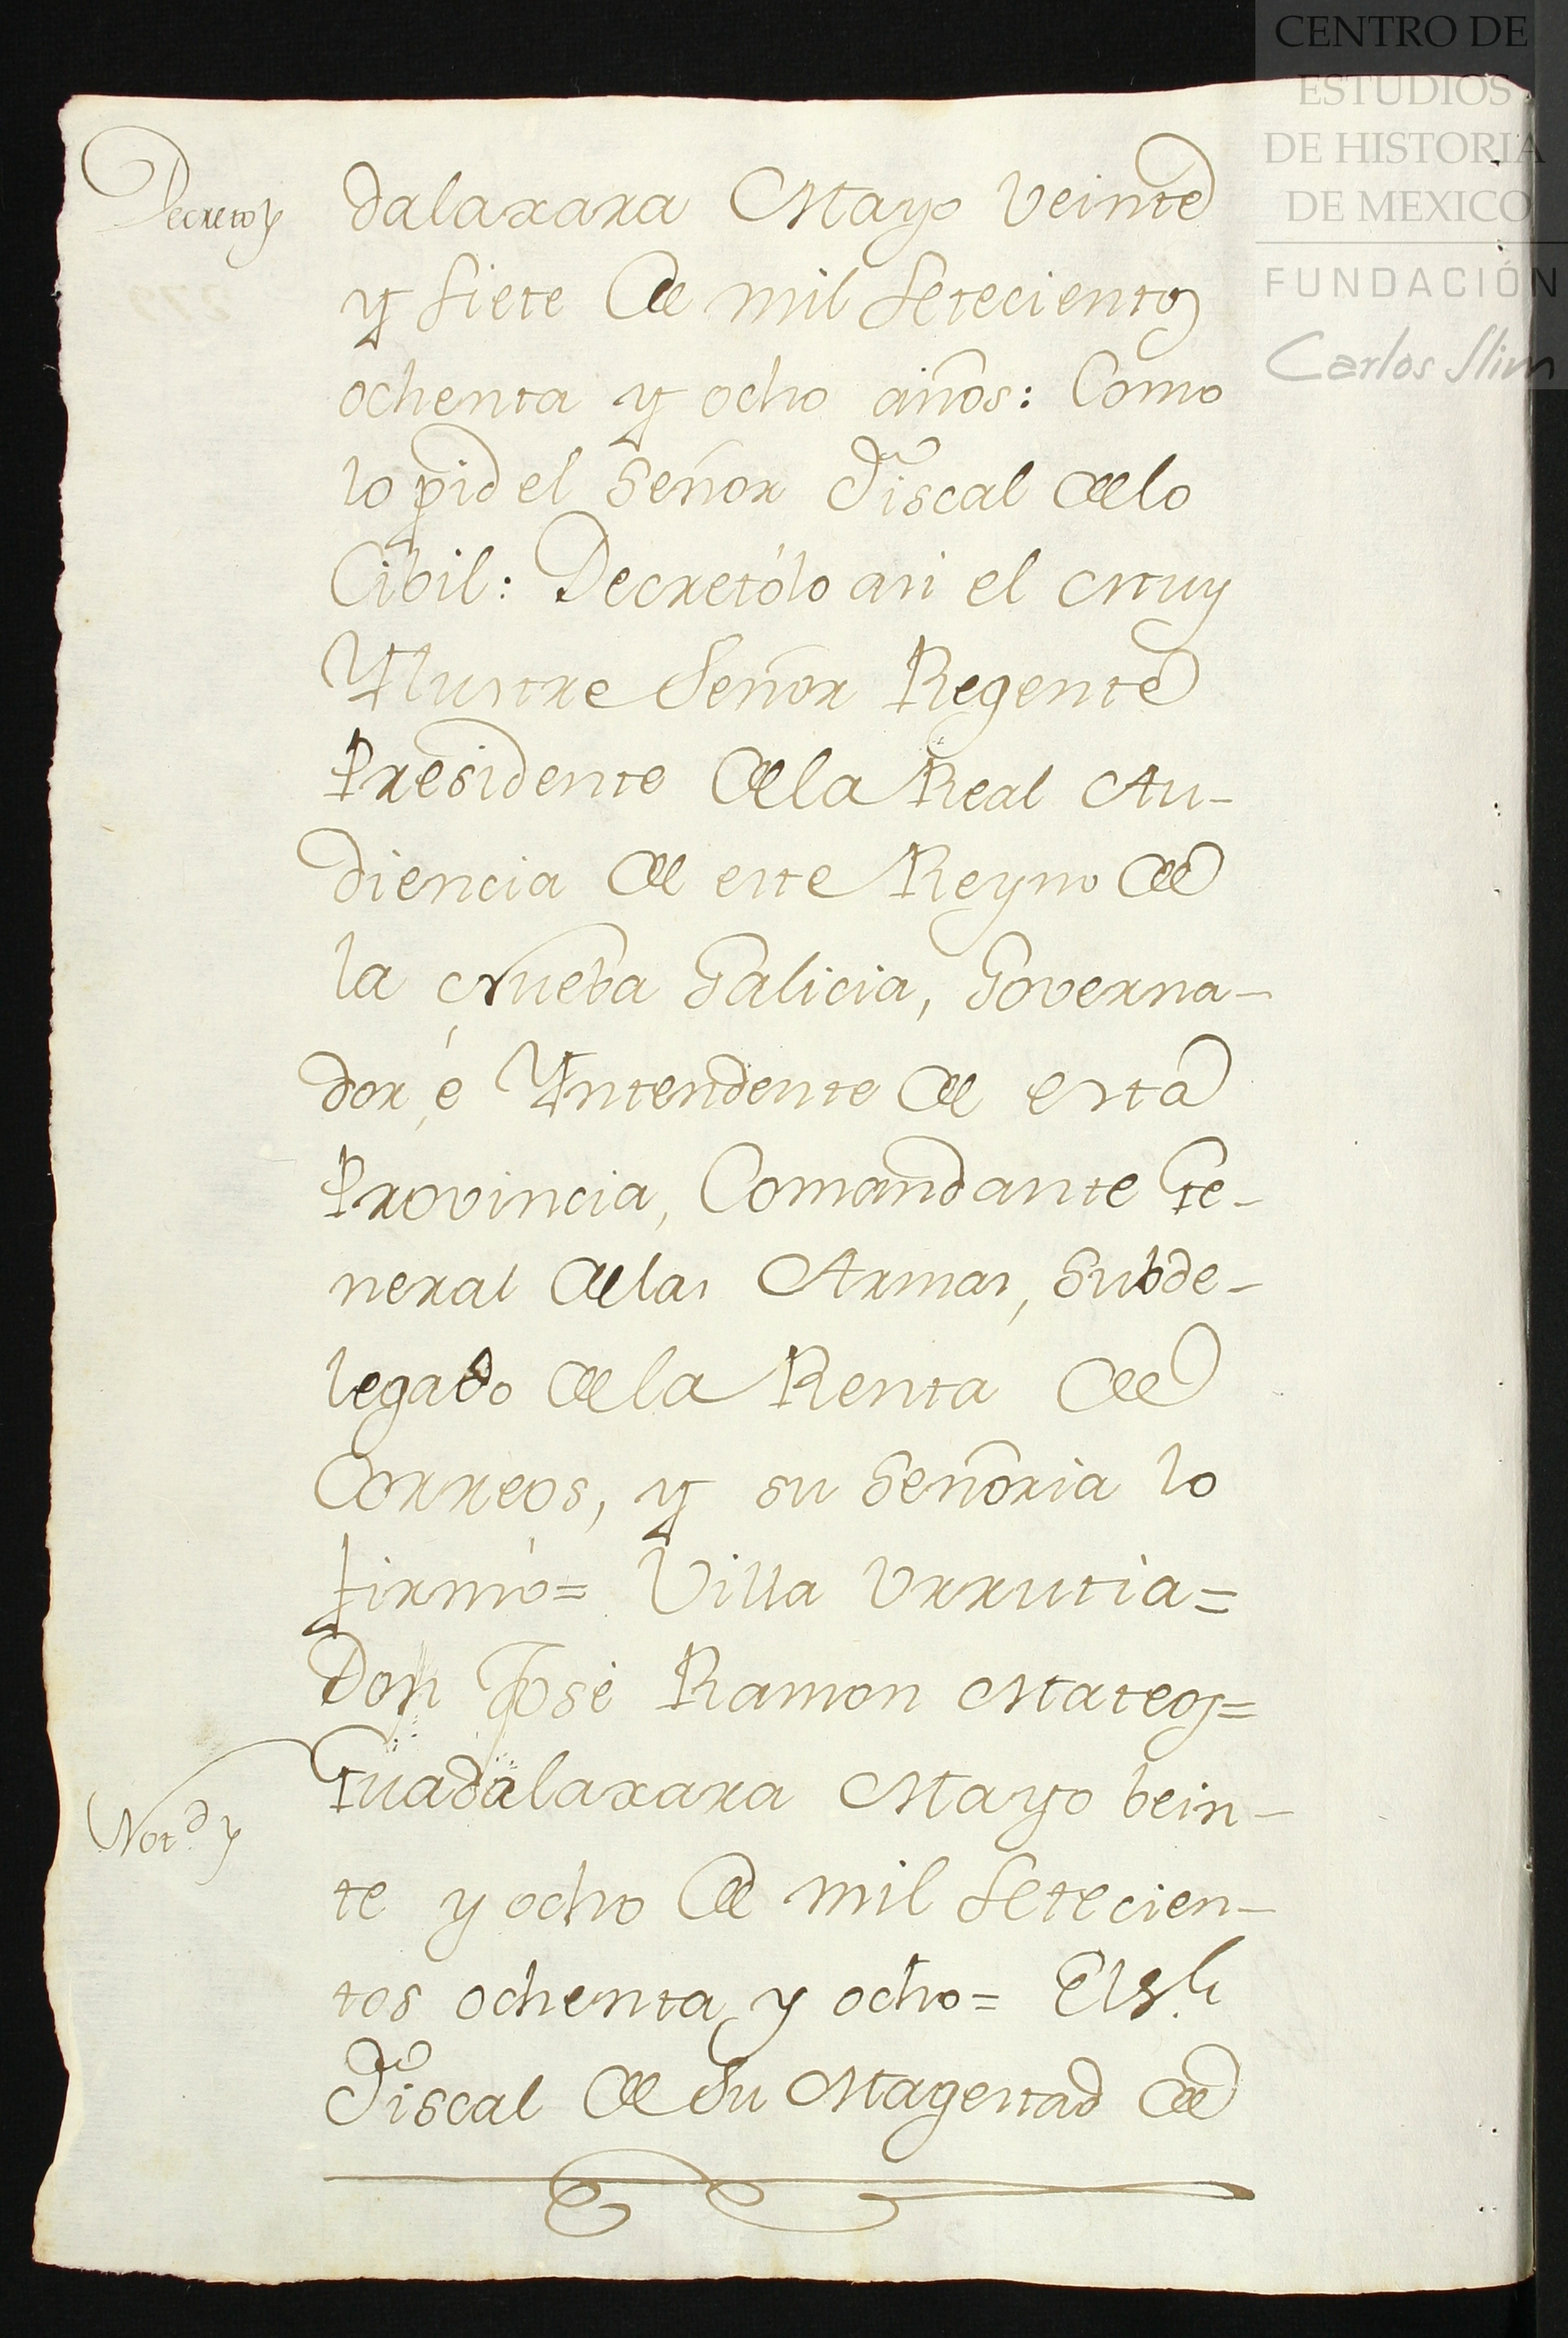 CENTRO DE
ESTUDIOS
DE HISTORIA
DE MEXICO
FUNDACIÓN
Carlos Slim
Decreto
dalaxara Mayo veinte
y siete de mil setecientos
ochenta y ocho años: Como
lo pid el Señor Fiscal de lo
Cibil: Decretólo asi el Muy
Ylustre Señor Regente
Presidente de la Real Au-
diencia de este Reyno de
la Nueba Galicia, Governa-
dor, é Yntendente de esta
Provincia, Comandante Ge-
neral de las Armas, Subde-
legado de la Renta de
Correos, y su Señoria lo
firmó= Villa Urrutia=
Don José Ramon Mateos=
Not.ⁿ
Guadalaxara Mayo bein-
te y ocho de mil setecien-
tos ochenta y ocho= El S.ʳ
Fiscal de Su Magestad de